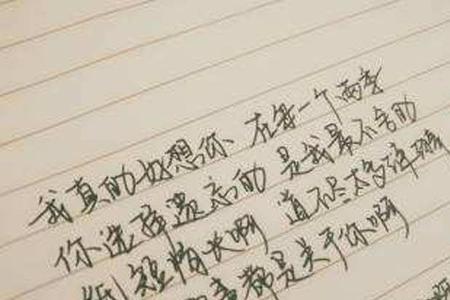 我真的好想你 在每一个雨季
你选择遗忘的 是我最不舍的
纸短情长啊 道不尽太多涟漪
都是关于你啊